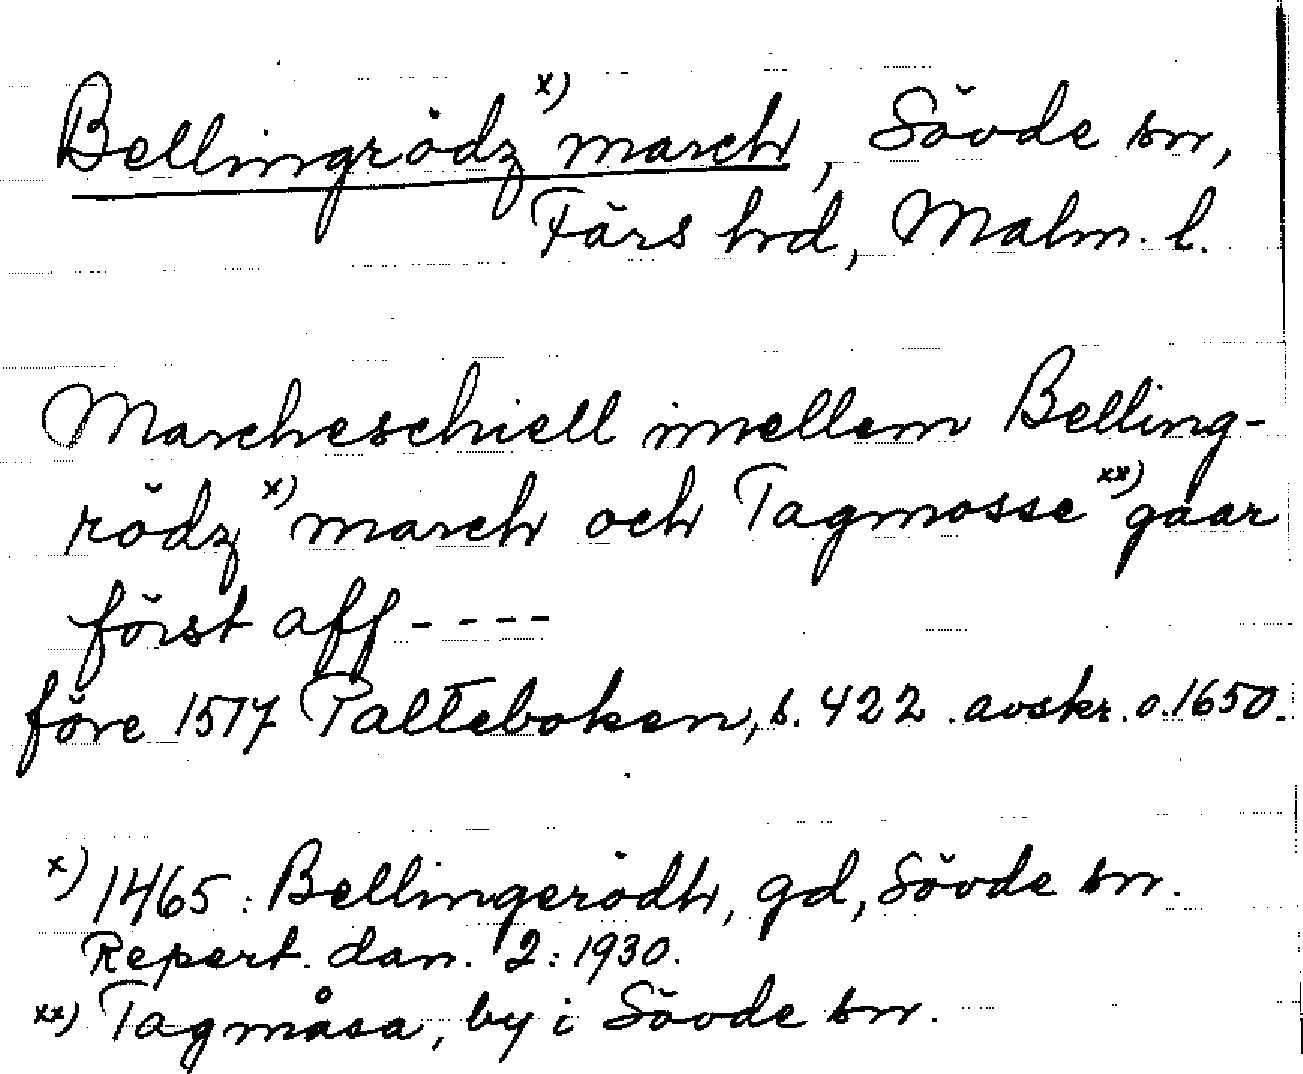 Bellingrödz x) march, Sövde sn,
Färs hd, Malm. l.
Marcheschiell imellem Belling-
rödz x) march och Tagmosse xx) gaar
först aff - - - -
före 1517 Palteboken, s. 422. avskr. o. 1650.
x) 1465: Bellingerödh, gd, Sövde sn.
Repert. dan. 2: 1930.
xx) Tagmåsa, by i Sövde sn.